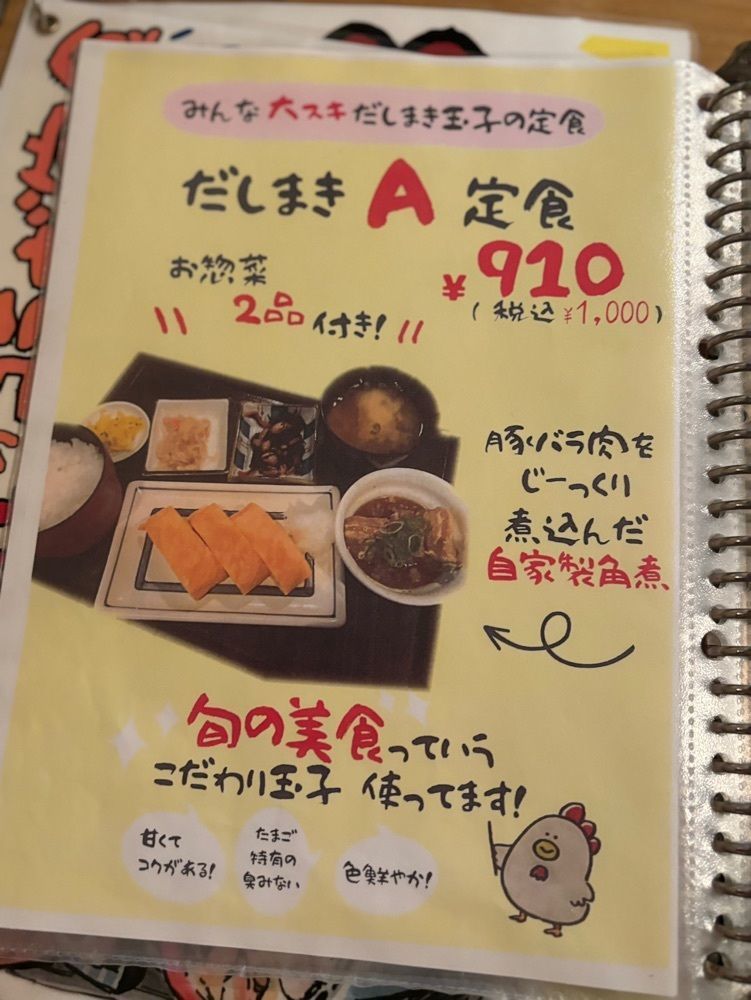 みんな大スキだしまき玉子の定食
だしまき A 定食
お惣菜
2品付き!
¥910
(税込¥1,000)
豚バラ肉を
じーっくり
煮込んだ
自家製角煮
旬の美食っていう
こだわり玉子 使ってます!
甘くて
コクがある!
たまご
特有の
臭みない
色鮮やか!